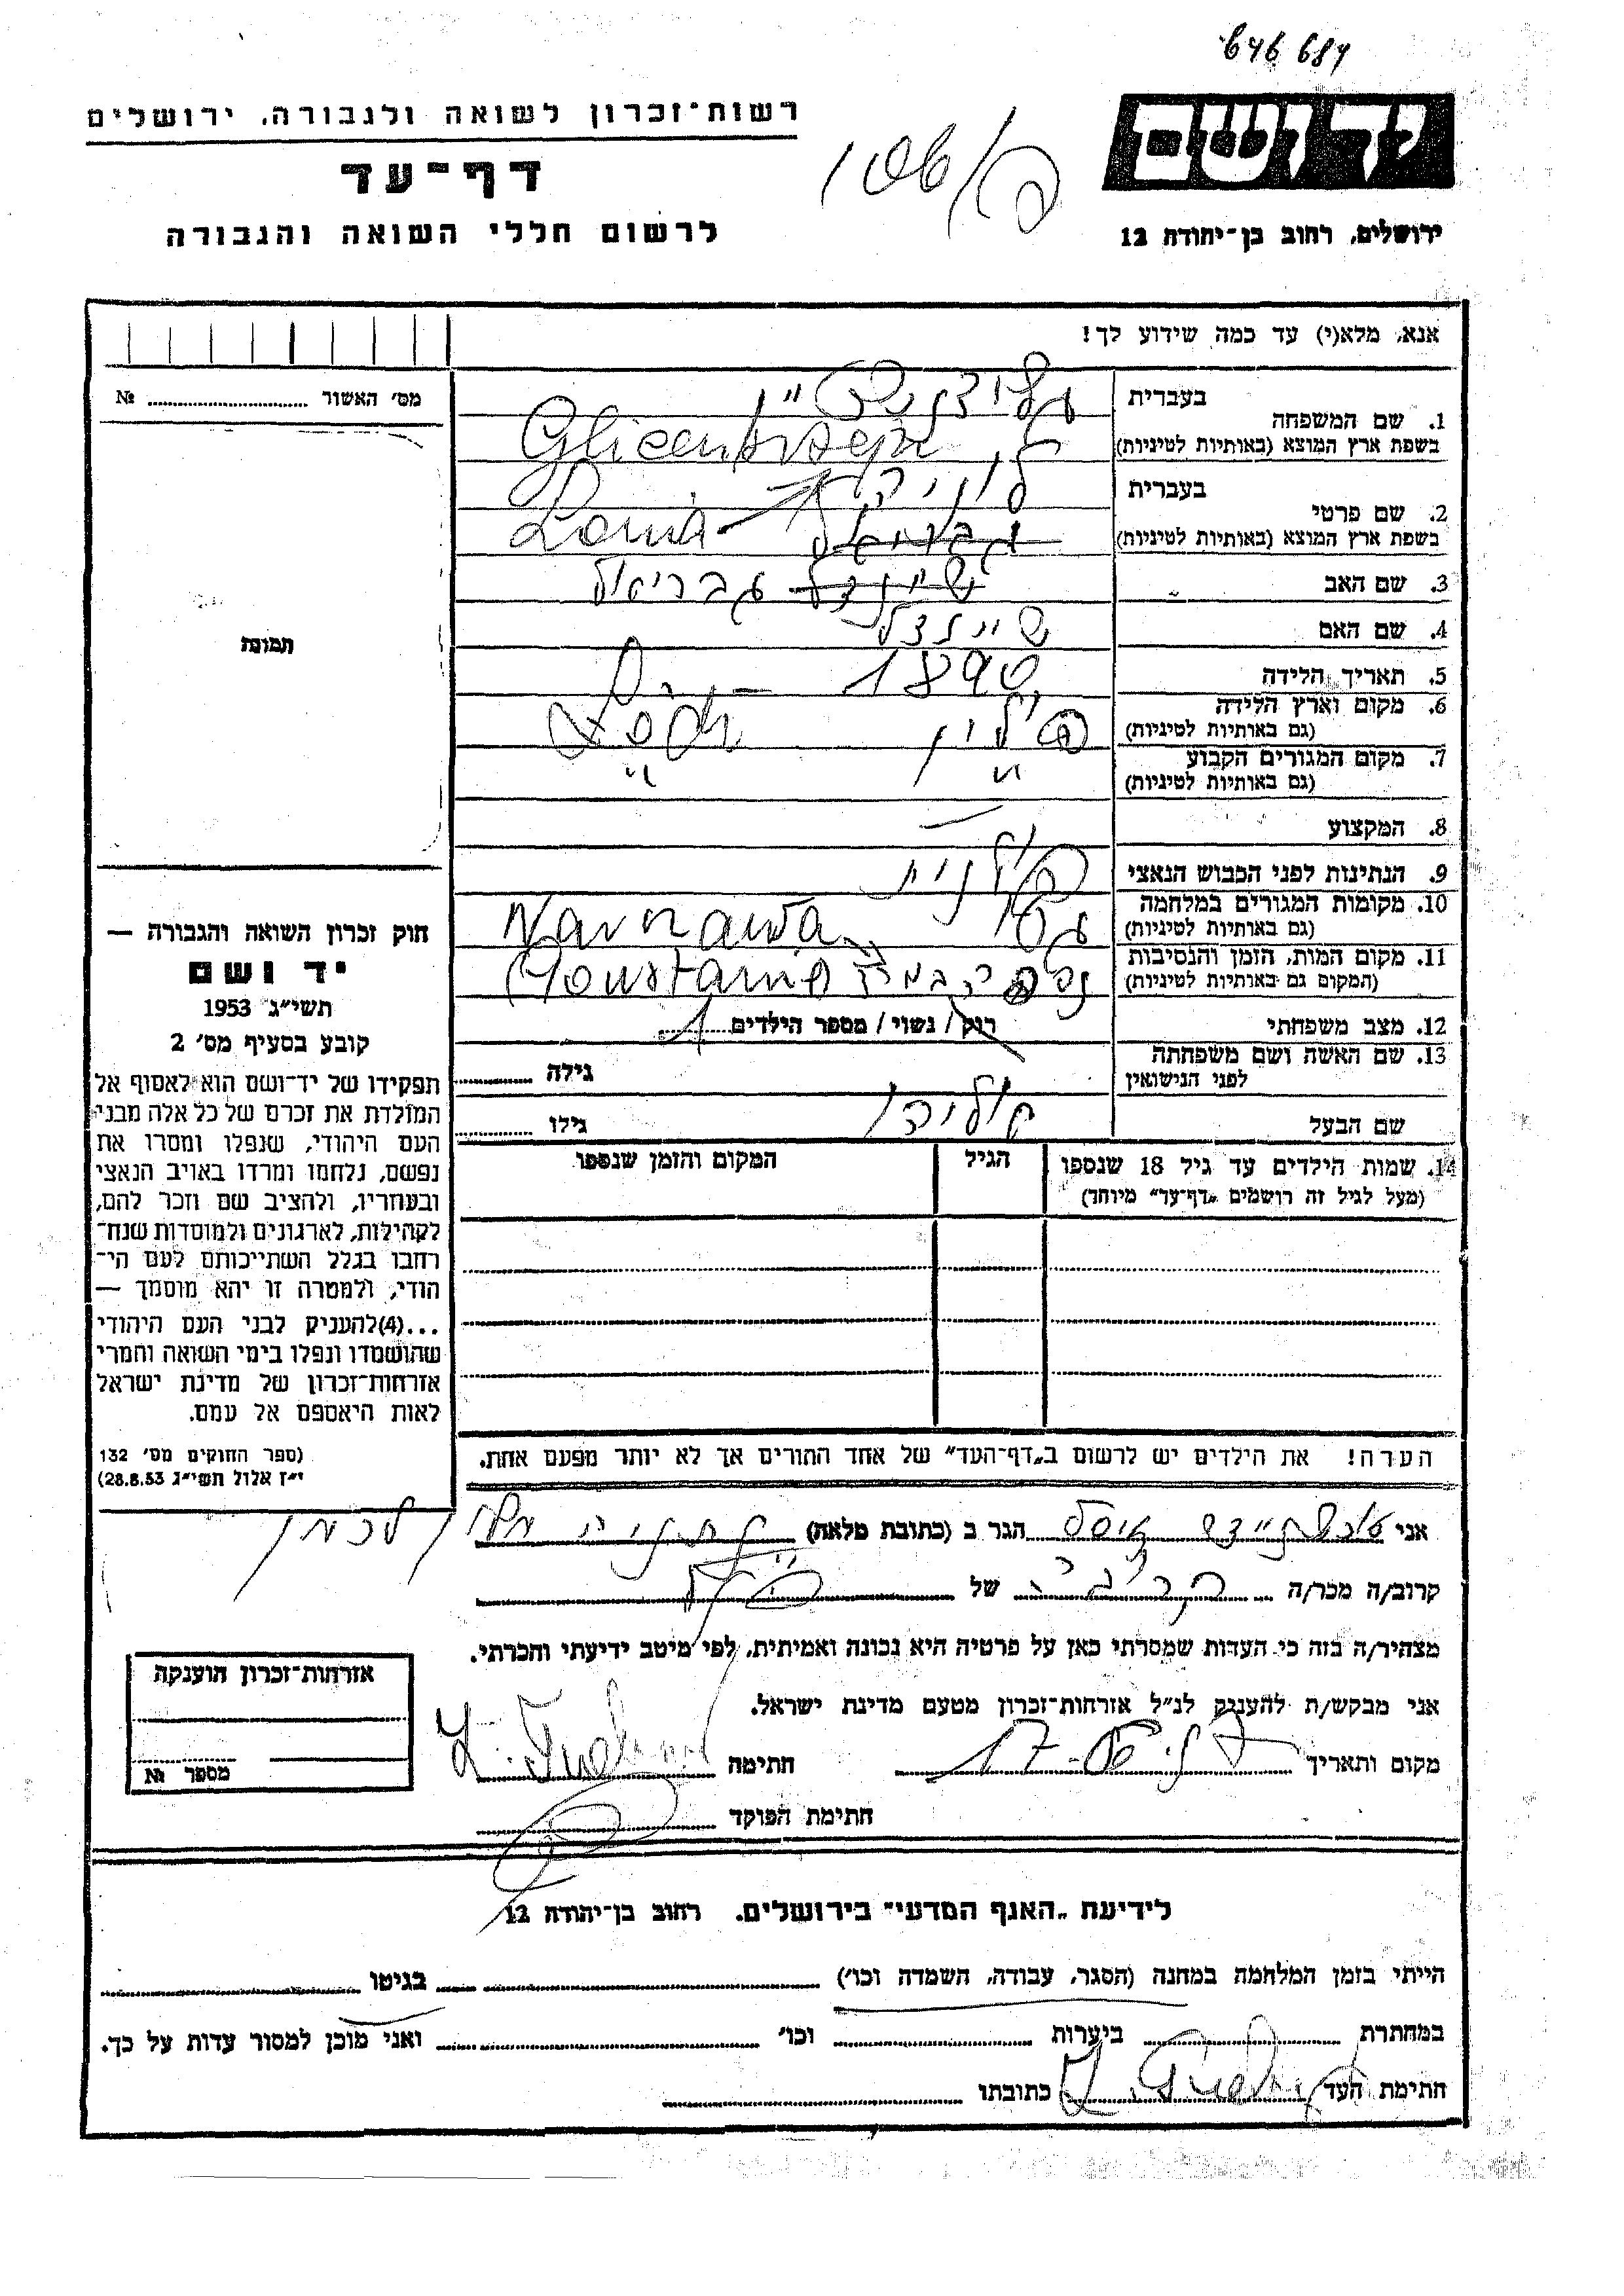 646 684
רשות־זכרון לשואה ולגבורה, ירושלים
יד ושם
דף־עד
לרשום חללי השואה והגבורה
ירושלים, רחוב בן־יהודה 12
אנא, מלא(י) עד כמה שידוע לך!
מס׳ האשור № 
1. שם המשפחה
בעברית
בשפת ארץ המוצא (באותיות לטיניות)
2. שם פרטי
בעברית לוניה
בשפת ארץ המוצא (באותיות לטיניות) Lonia
3. שם האב גבריאל
4. שם האם שיינדל
5. תאריך הלידה 1890
6. מקום וארץ הלידה פולין
(גם באותיות לטיניות)
7. מקום המגורים הקבוע " "
(גם באותיות לטיניות)
8. המקצוע —
9. הנתינות לפני הכבוש הנאצי פולנית
10. מקומות המגורים במלחמה גטו Warszawa
(גם באותיות לטיניות)
11. מקום המות, הזמן והנסיבות
(המקום גם באותיות לטיניות)
12. מצב משפחתי רווק / נשוי / מספר הילדים 1
13. שם האשה ושם משפחתה
לפני הנישואין גילה
שם הבעל גילו
14. שמות הילדים עד גיל 18 שנספו הגיל המקום והזמן שנספו
(מעל לגיל זה רושמים „דף־עד״ מיוחד)
תמונה
חוק זכרון השואה והגבורה —
יד ושם
תשי״ג 1953
קובע בסעיף מס׳ 2
תפקידו של יד־ושם הוא לאסוף אל
המולדת את זכרם של כל אלה מבני
העם היהודי, שנפלו ומסרו את
נפשם, נלחמו ומרדו באויב הנאצי
ובעוזריו, ולהציב שם וזכר להם,
לקהילות, לארגונים ולמוסדות שנח־
רחבו בגלל השתייכותם לעם הי־
הודי, ולמטרה זו יהא מוסמך —
...(4)להעניק לבני העם היהודי
שהושמדו ונפלו בימי השואה והמרי
אזרחות־זכרון של מדינת ישראל
לאות היאספם אל עמם.
(ספר החוקים מס׳ 132
י״ז אלול תשי״ג 28.8.53)
הערה! את הילדים יש לרשום ב„דף־העד״ של אחד ההורים אך לא יותר מפעם אחת.
אני הגר ב (כתובת מלאה) נתניה
קרוב/ה מכר/ה של
מצהיר/ה בזה כי העדות שמסרתי כאן על פרטיה היא נכונה ואמיתית, לפי מיטב ידיעתי והכרתי.
אני מבקש/ת להעניק לנ״ל אזרחות־זכרון מטעם מדינת ישראל.
מקום ותאריך חתימה
חתימת הפוקד
אזרחות־זכרון הוענקה
מספר №
לידיעת „האגף המדעי״ בירושלים, רחוב בן־יהודה 12
הייתי בזמן המלחמה במחנה (הסגר, עבודה, השמדה וכו׳) בגיטו
במחתרת ביערות וכו׳ ואני מוכן למסור עדות על כך.
חתימת העד כתובתו